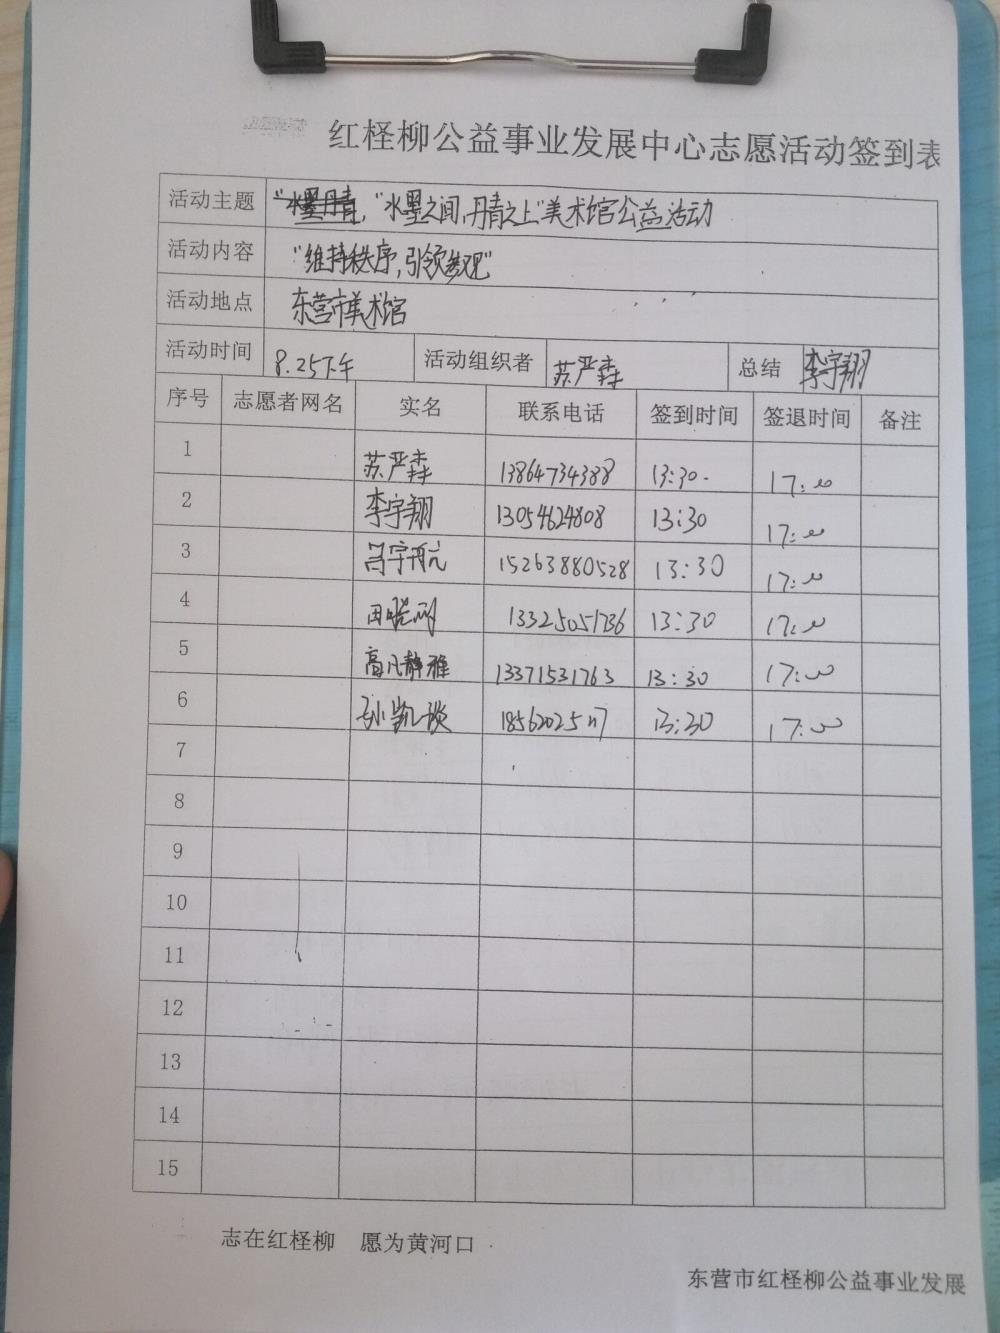 红柽柳公益事业发展中心志愿活动签到表
活动主题 "水墨丹青, "水墨之间,丹青之上"美术馆公益活动
活动内容 "维持秩序,引领参观"
活动地点 东营市美术馆
活动时间 8.25下午 活动组织者 苏严森 总结 李宇翔
序号 志愿者网名 实名 联系电话 签到时间 签退时间 备注
1 苏严森 13864734388 13:30. 17:00
2 李宇翔 13054624808 13:30 17:00
3 吕宇航 15263880528 13:30 17:00
4 13325051736 13:30 17:00
5 高凡静雅 13371531763 13:30 17:00
6 孙凯 13:30 17:00
7
8
9
10
11
12
13
14
15
志在红柽柳 愿为黄河口
东营市红柽柳公益事业发展